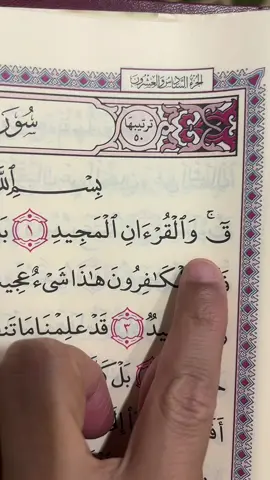 الجزء السادس والعشرون
سُورَ
ترتيبها
٥٠
بِسْمِ
قٓ ۚ وَٱلْقُرْءَانِ ٱلْمَجِيدِ ١
ٱلْكَٰفِرُونَ هَٰذَا شَىْءٌ عَجِي
٣ قَدْ عَلِمْنَا مَا تَن
بَلْ